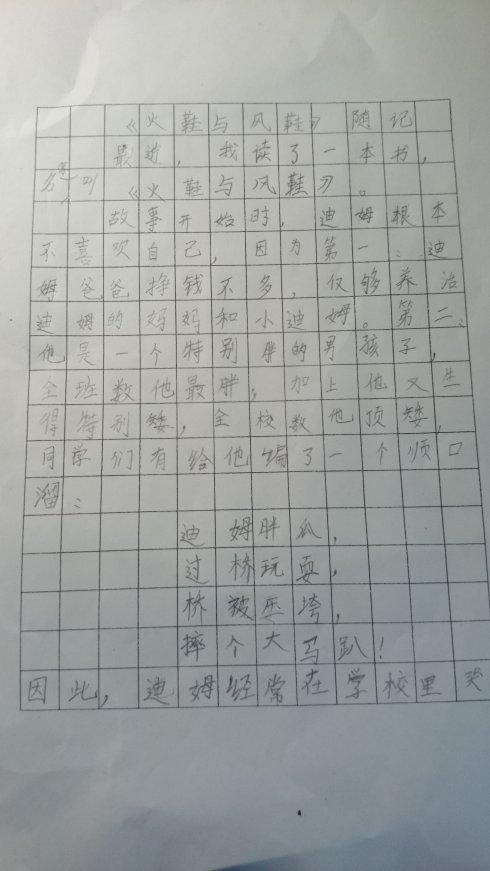 《火鞋与风鞋》随记
最近，我读了一本书，
名字叫《火鞋与风鞋》。
故事开始时，迪姆根本
不喜欢自己，因为第一：迪
姆爸爸挣钱不多，仅够养活
迪姆的妈妈和小迪姆。第二：
他是一个特别胖的男孩子，
全班数他最胖，加上他又生
得特别矮，全校数他顶矮，
同学们有给他编了一个顺口
溜：
迪姆胖瓜，
过桥玩耍，
桥被压垮，
摔个大马趴！
因此，迪姆经常在学校里哭